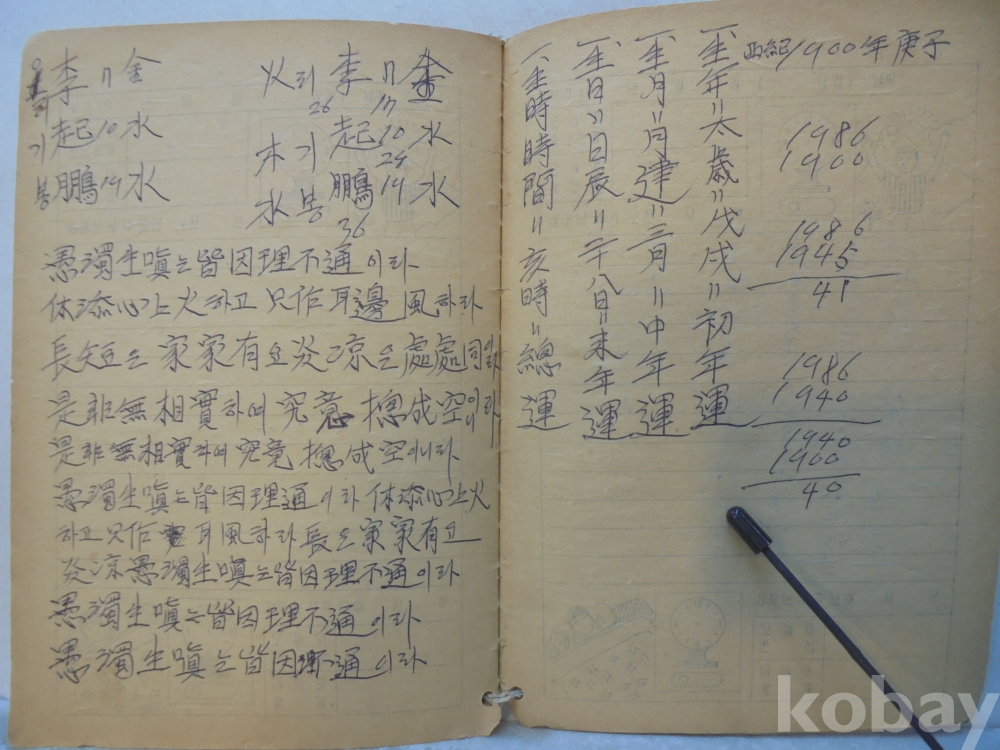 李 11 金
기 起 10 水
봉 鵬 19 水
火 리 李 11 金
26 17
木 기 起 10 水
29
水 봉 鵬 19 水
36
愚濁生嗔는 皆因理不通이라
休添心上火하고 只作耳邊風하라
長短는 家家有요 炎凉은 處處同이라
是非無相實하여 究竟摠成空이니라
是非無相實하여 究竟摠成空이니라
愚濁生嗔는 皆因理通이라 休添心上火
하고 只作耳風하라 長은 家家有요
炎凉愚濁生嗔는 皆因理不通이라
愚濁生嗔는 皆因理不通이라
愚濁生嗔는 皆因不通이라
西紀1900年庚子
一、生年〃太歲〃戊戌〃初年運
一、生月〃月建〃三月〃中年運
一、生日〃日辰〃二十八日〃末年運
一、生時時間〃亥時〃總運
1986
1900
1986
1945
41
1986
1940
1940
1900
40
kobay